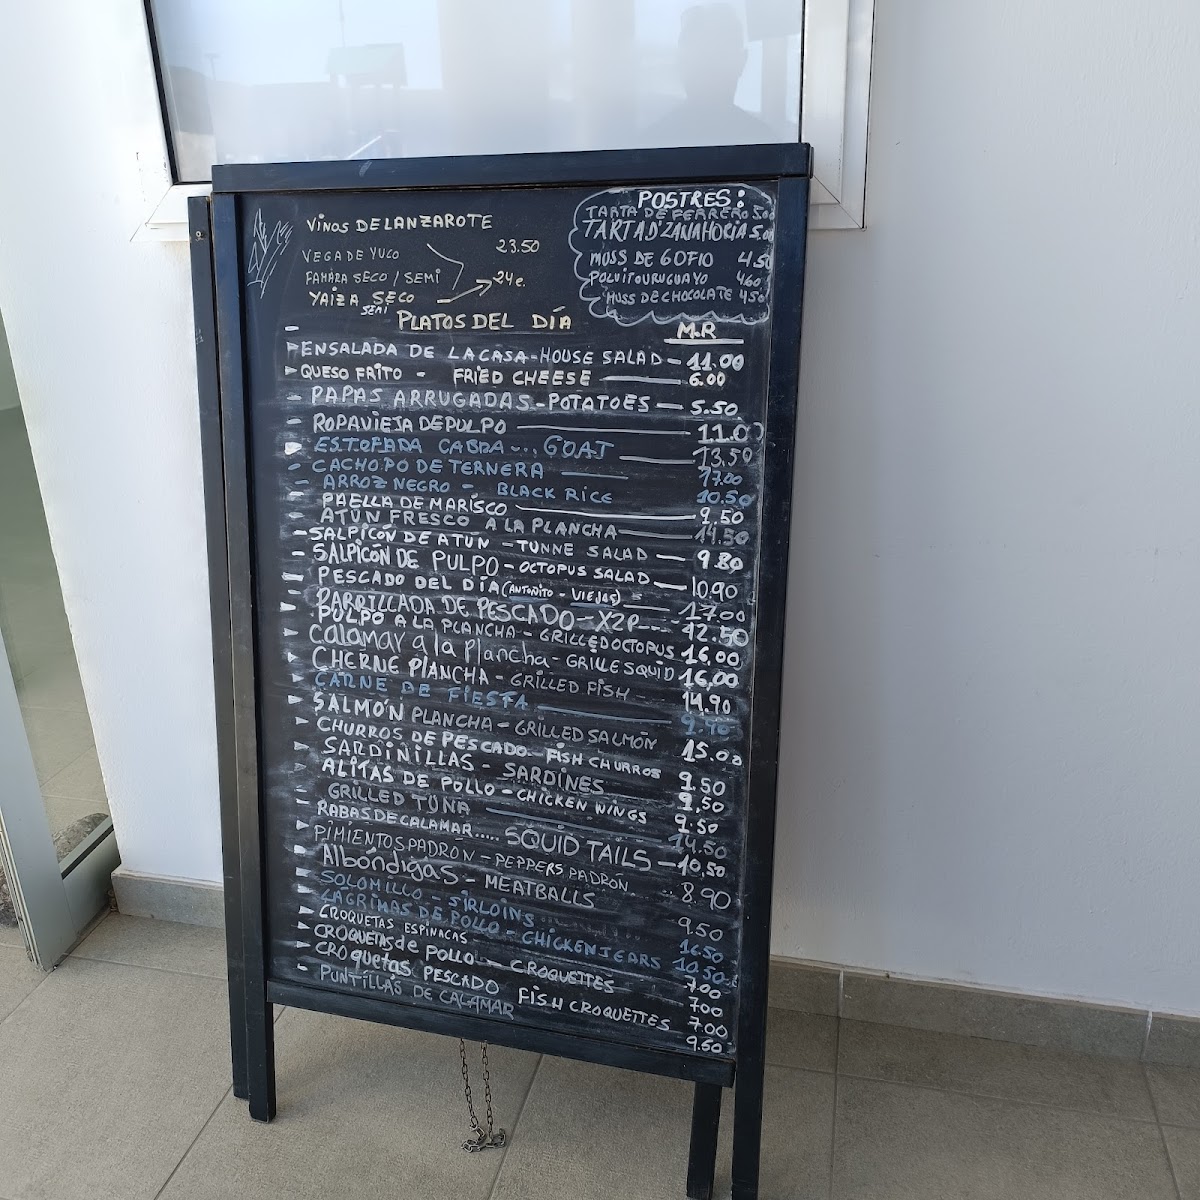 VINOS DE LANZAROTE
VEGA DE YUCO 23.50
FAMARA SECO / SEMI
YAIZA SECO 24e.
SEMI
POSTRES:
TARTA DE FERRERO 5.00
TARTA D'ZANAHORIA 5.00
MUSS DE GOFIO 4.50
POLVITO URUGUAYO 4.60
MUSS DE CHOCOLATE 4.50
PLATOS DEL DÍA
M.R
ENSALADA DE LA CASA - HOUSE SALAD - 11.00
QUESO FRITO - FRIED CHEESE 6.00
PAPAS ARRUGADAS - POTATOES - 5.50
ROPAVIEJA DE PULPO 11.0
ESTOFADA CABRA ... GOAT 13.50
CACHOPO DE TERNERA 17.00
ARROZ NEGRO - BLACK RICE 10.50
PAELLA DE MARISCO 9.50
ATÚN FRESCO A LA PLANCHA 14.50
SALPICÓN DE ATUN - TUNNE SALAD 9.80
SALPICÓN DE PULPO - OCTOPUS SALAD 10.90
PESCADO DEL DÍA (ANTOÑITO - VIEJAS) 17.00
PARRILLADA DE PESCADO - X2P 12.50
PULPO A LA PLANCHA - GRILLED OCTOPUS 16,00
Calamar a la Plancha - GRILLE SQUID 16,00
CHERNE PLANCHA - GRILLED FISH 14.90
CARNE DE FIESTA 9.90
SALMÓN PLANCHA - GRILLED SALMÓN 15.00
CHURROS DE PESCADO - FISH CHURROS 9.50
SARDINILLAS - SARDINES 9.50
ALITAS DE POLLO - CHICKEN WINGS 9.50
GRILLED TUNA 14.50
RABAS DE CALAMAR..... SQUID TAILS - 10,50
PIMIENTOS PADRÓN - PEPPERS PADRÓN 8.90
Albóndigas - MEATBALLS 9.50
SOLOMILLO - SIRLOINS 16.50
LAGRIMAS DE POLLO - CHICKEN TEARS 10.50
CROQUETAS ESPINACAS 7.00
CROQUETAS de POLLO - CROQUETTES 7.00
CROquetas PESCADO FISH CROQUETTES 7.00
PUNTILLAS DE CALAMAR 9.60